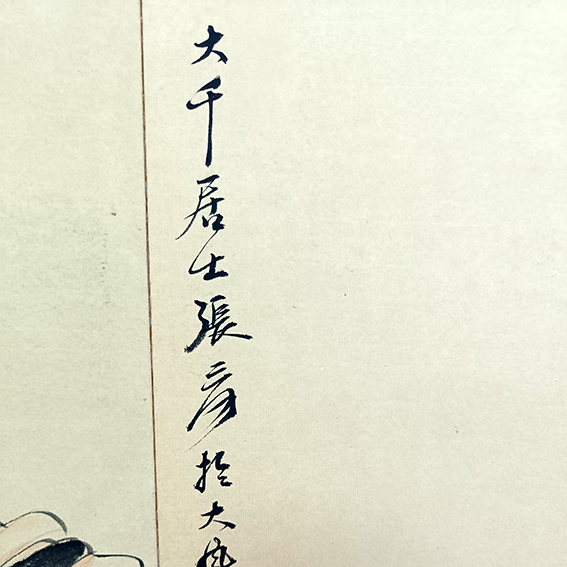 大千居士張爰於大風